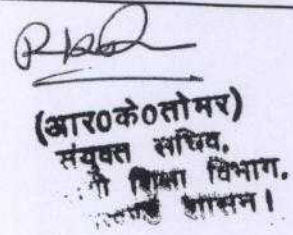 (आर0के0तोमर)
संयुक्त सचिव,
शिक्षा विभाग,
शासन।